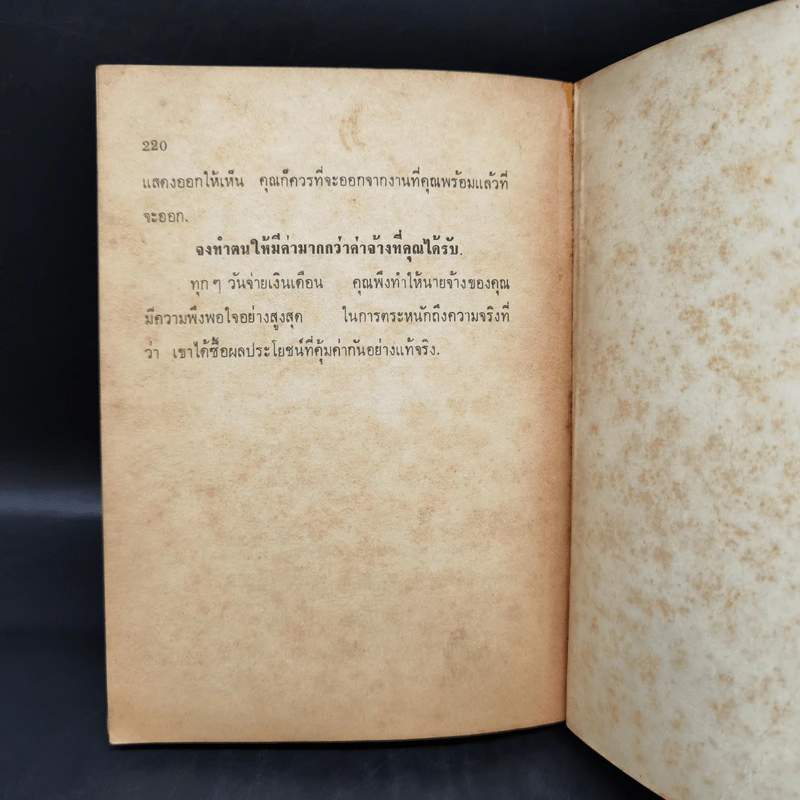 220
แสดงออกให้เห็น คุณก็ควรที่จะออกจากงานที่คุณพร้อมแล้วที่
จะออก.
จงทำตนให้มีค่ามากกว่าค่าจ้างที่คุณได้รับ.
ทุกๆ วันจ่ายเงินเดือน คุณพึงทำให้นายจ้างของคุณ
มีความพึงพอใจอย่างสูงสุด ในการตระหนักถึงความจริงที่
ว่า เขาได้ซื้อผลประโยชน์ที่คุ้มค่ากันอย่างแท้จริง.